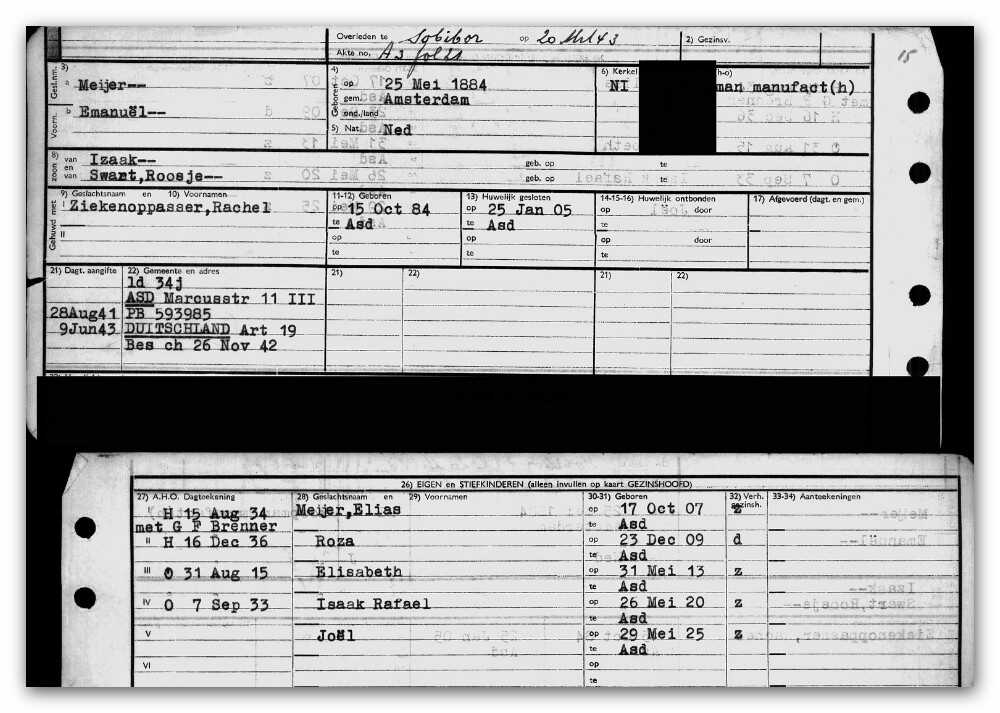 Overleden te Sobibor op 20 Mrt 43 2) Gezinsv.
Akte no. A3 fol 28 15
Gesl.nm. 3) 4) 6) Kerkel h-o)
a Meijer-- Geboren op 25 Mei 1884 NI man manufact(h)
gem. Amsterdam
Voorn. b Emanuël-- ond./land
5) Nat. Ned
zoon 8) van Izaak-- geb. op te
en
van Swart,Roosje-- geb. op te
Gehuwd met 9) Geslachtsnaam en 10) Voornamen 11-12) Geboren 13) Huwelijk gesloten 14-15-16) Huwelijk ontbonden 17) Afgevoerd (dagt. en gem.)
I Ziekenoppasser,Rachel op 15 Oct 84 op 25 Jan 05 op door
te Asd te Asd te
II op op op door
te te te
21) Dagt. aangifte 22) Gemeente en adres 21) 22) 21) 22)
ld 34j
ASD Marcusstr 11 III
28Aug41 PB 593985
9Jun43 DUITSCHLAND Art 19
Bes ch 26 Nov 42
26) EIGEN en STIEFKINDEREN (alleen invullen op kaart GEZINSHOOFD)
27) A.H.O. Dagteekening 28) Geslachtsnaam en 29) Voornamen 30-31) Geboren 32) Verh. gezinsh. 33-34) Aanteekeningen
H 15 Aug 34 Meijer,Elias op 17 Oct 07 z
met G F Brenner te Asd
II H 16 Dec 36 Roza op 23 Dec 09 d
te Asd
III O 31 Aug 15 Elisabeth op 31 Mei 13 z
te Asd
IV O 7 Sep 33 Isaak Rafael op 26 Mei 20 z
te Asd
V Joël op 29 Mei 25 z
te Asd
VI op
te